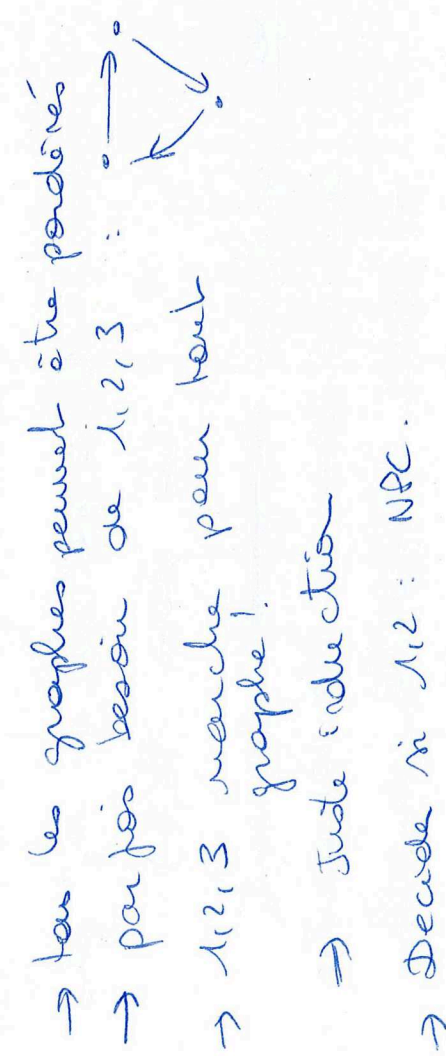 → tous les graphes peuvent être pondérés
→ parfois besoin de 1,2,3 :
→ 1,2,3 marche pour tout
graphe !
→ Juste induction
→ Decider si 1,2 : NPC.